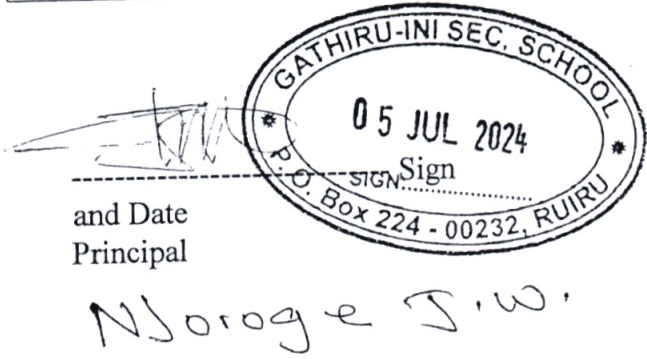 GATHIRU-INI SEC. SCHOOL
05 JUL 2024
Sign
SIGN....................
P.O. Box 224 - 00232, RUIRU
and Date
Principal
Njoroge J.W.